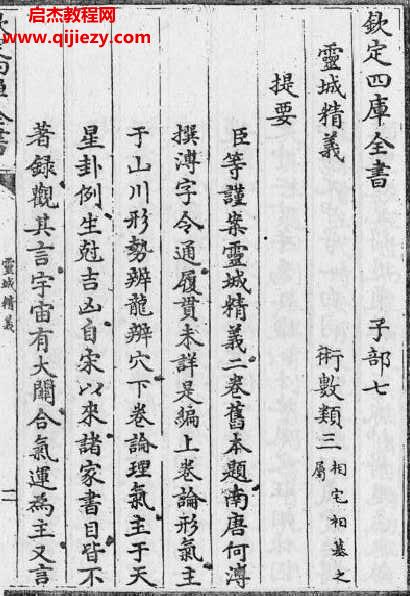 启杰教程网
www.qijiezy.com
欽定四庫全書 子部七
靈城精義 術數類三 相宅相墓之屬
提要
臣等謹案靈城精義二卷舊本題南唐何溥
撰溥字令通履貫未詳是編上卷論形氣主
于山川形勢辨龍辨穴下卷論理氣主于天
星卦例生尅吉凶自宋以來諸家書目皆不
著錄觀其言宇宙有大關合氣運為主又言
靈城精義